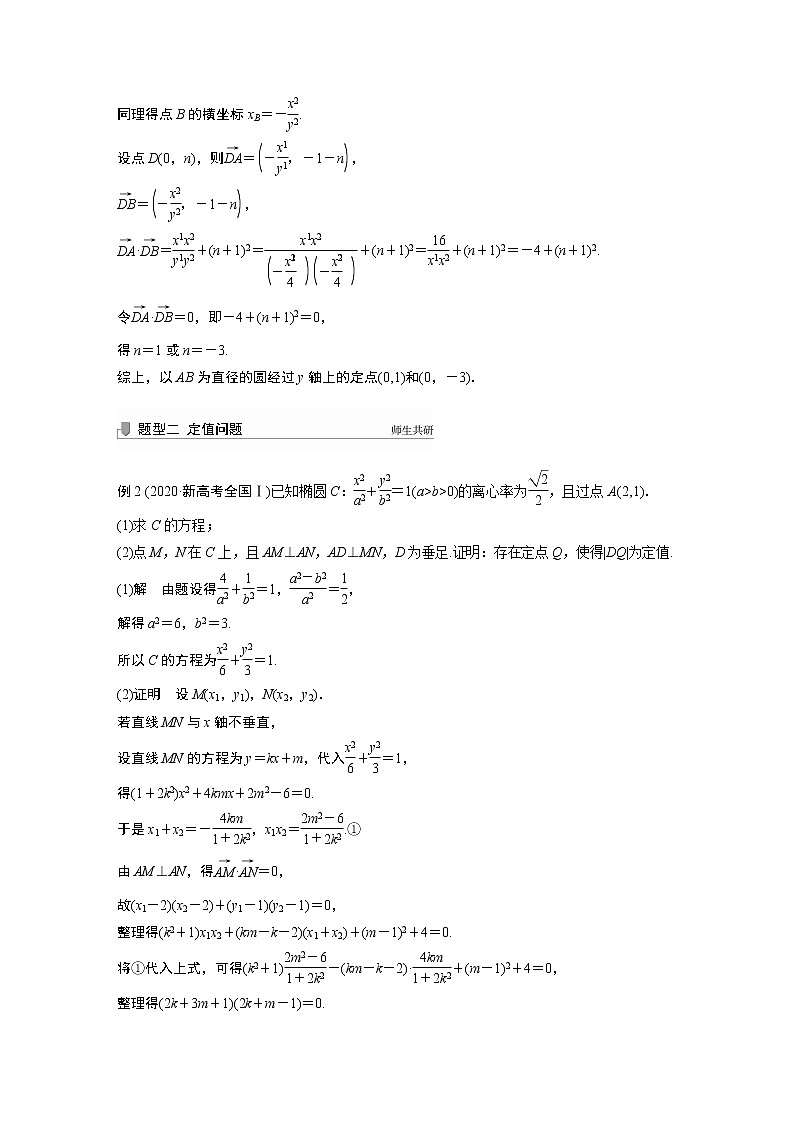 同理得点B的横坐标x_B=-\frac{x2}{y2}.
设点D(0,n),则\overrightarrow{DA}=\left(-\frac{x1}{y1},-1-n\right),
\overrightarrow{DB}=\left(-\frac{x2}{y2},-1-n\right),
\overrightarrow{DA}·\overrightarrow{DB}=\frac{x1x2}{y1y2}+(n+1)²=\frac{x1x2}{\left(-\frac{x2}{4}\right)\left(-\frac{x2}{4}\right)}+(n+1)²=\frac{16}{x1x2}+(n+1)²=-4+(n+1)².
令\overrightarrow{DA}·\overrightarrow{DB}=0,即-4+(n+1)²=0,
得n=1或n=-3.
综上,以AB为直径的圆经过y轴上的定点(0,1)和(0,-3).
题型二 定值问题 师生共研
例2 (2020·新高考全国Ⅰ)已知椭圆C:\frac{x2}{a2}+\frac{y2}{b2}=1(a>b>0)的离心率为\frac{\sqrt{2}}{2},且过点A(2,1).
(1)求C的方程;
(2)点M,N在C上,且AM⊥AN,AD⊥MN,D为垂足.证明:存在定点Q,使得|DQ|为定值.
(1)解 由题设得\frac{4}{a2}+\frac{1}{b2}=1,\frac{a2-b2}{a2}=\frac{1}{2},
解得a²=6,b²=3.
所以C的方程为\frac{x2}{6}+\frac{y2}{3}=1.
(2)证明 设M(x₁,y₁),N(x₂,y₂).
若直线MN与x轴不垂直,
设直线MN的方程为y=kx+m,代入\frac{x2}{6}+\frac{y2}{3}=1,
得(1+2k²)x²+4kmx+2m²-6=0.
于是x₁+x₂=-\frac{4km}{1+2k2},x₁x₂=\frac{2m2-6}{1+2k2}.①
由AM⊥AN,得\overrightarrow{AM}·\overrightarrow{AN}=0,
故(x₁-2)(x₂-2)+(y₁-1)(y₂-1)=0,
整理得(k²+1)x₁x₂+(km-k-2)(x₁+x₂)+(m-1)²+4=0.
将①代入上式,可得(k²+1)\frac{2m2-6}{1+2k2}-(km-k-2)·\frac{4km}{1+2k2}+(m-1)²+4=0,
整理得(2k+3m+1)(2k+m-1)=0.